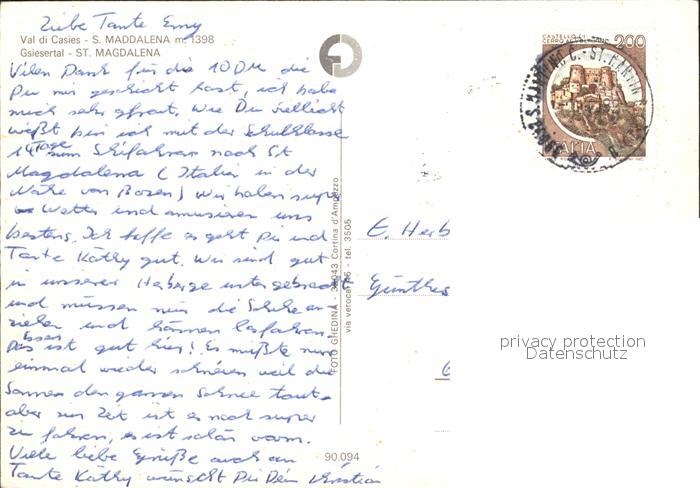 Liebe Tante Emy
Val di Casies - S. MADDALENA m. 1398
Gsiesertal - ST. MAGDALENA
Vilen Dank für die 10 DM die
Du mir geschickt hast, ich habe
mich sehr gfreut. Wie Du vielleicht
weißt bin ich mit der Schulklasse
14 Tage zum Schifahren nach St
Magdalena (Italien in der
Nähe von Bozen) Wir haben super
Wetter und amusieren uns
bestens. Ich hoffe es geht Dir und
Tante Käthy gut. Wir sind gut
in unserer Herberge untergebracht
und müssen nur die Schihe an
ziehen und können losfahren.
Das Essen ist gut hier! Es müßte nur
einmal wieder schneien weil die
Sonne den ganzen Schnee taut
aber zur Zeit ist es noch super
zu fahren, es ist schön warm.
Viele liebe Grüße auch an
Tante Käthy wünscht Dir Dein Christian
FOTO GHEDINA - 32043 Cortina d'Ampezzo
via verocai 6 - tel. 3505
90.094
CASTELLO DI
CERRO AL VOLTURNO
200
ITALIA
E. Herb
Günthers
G
privacy protection
Datenschutz